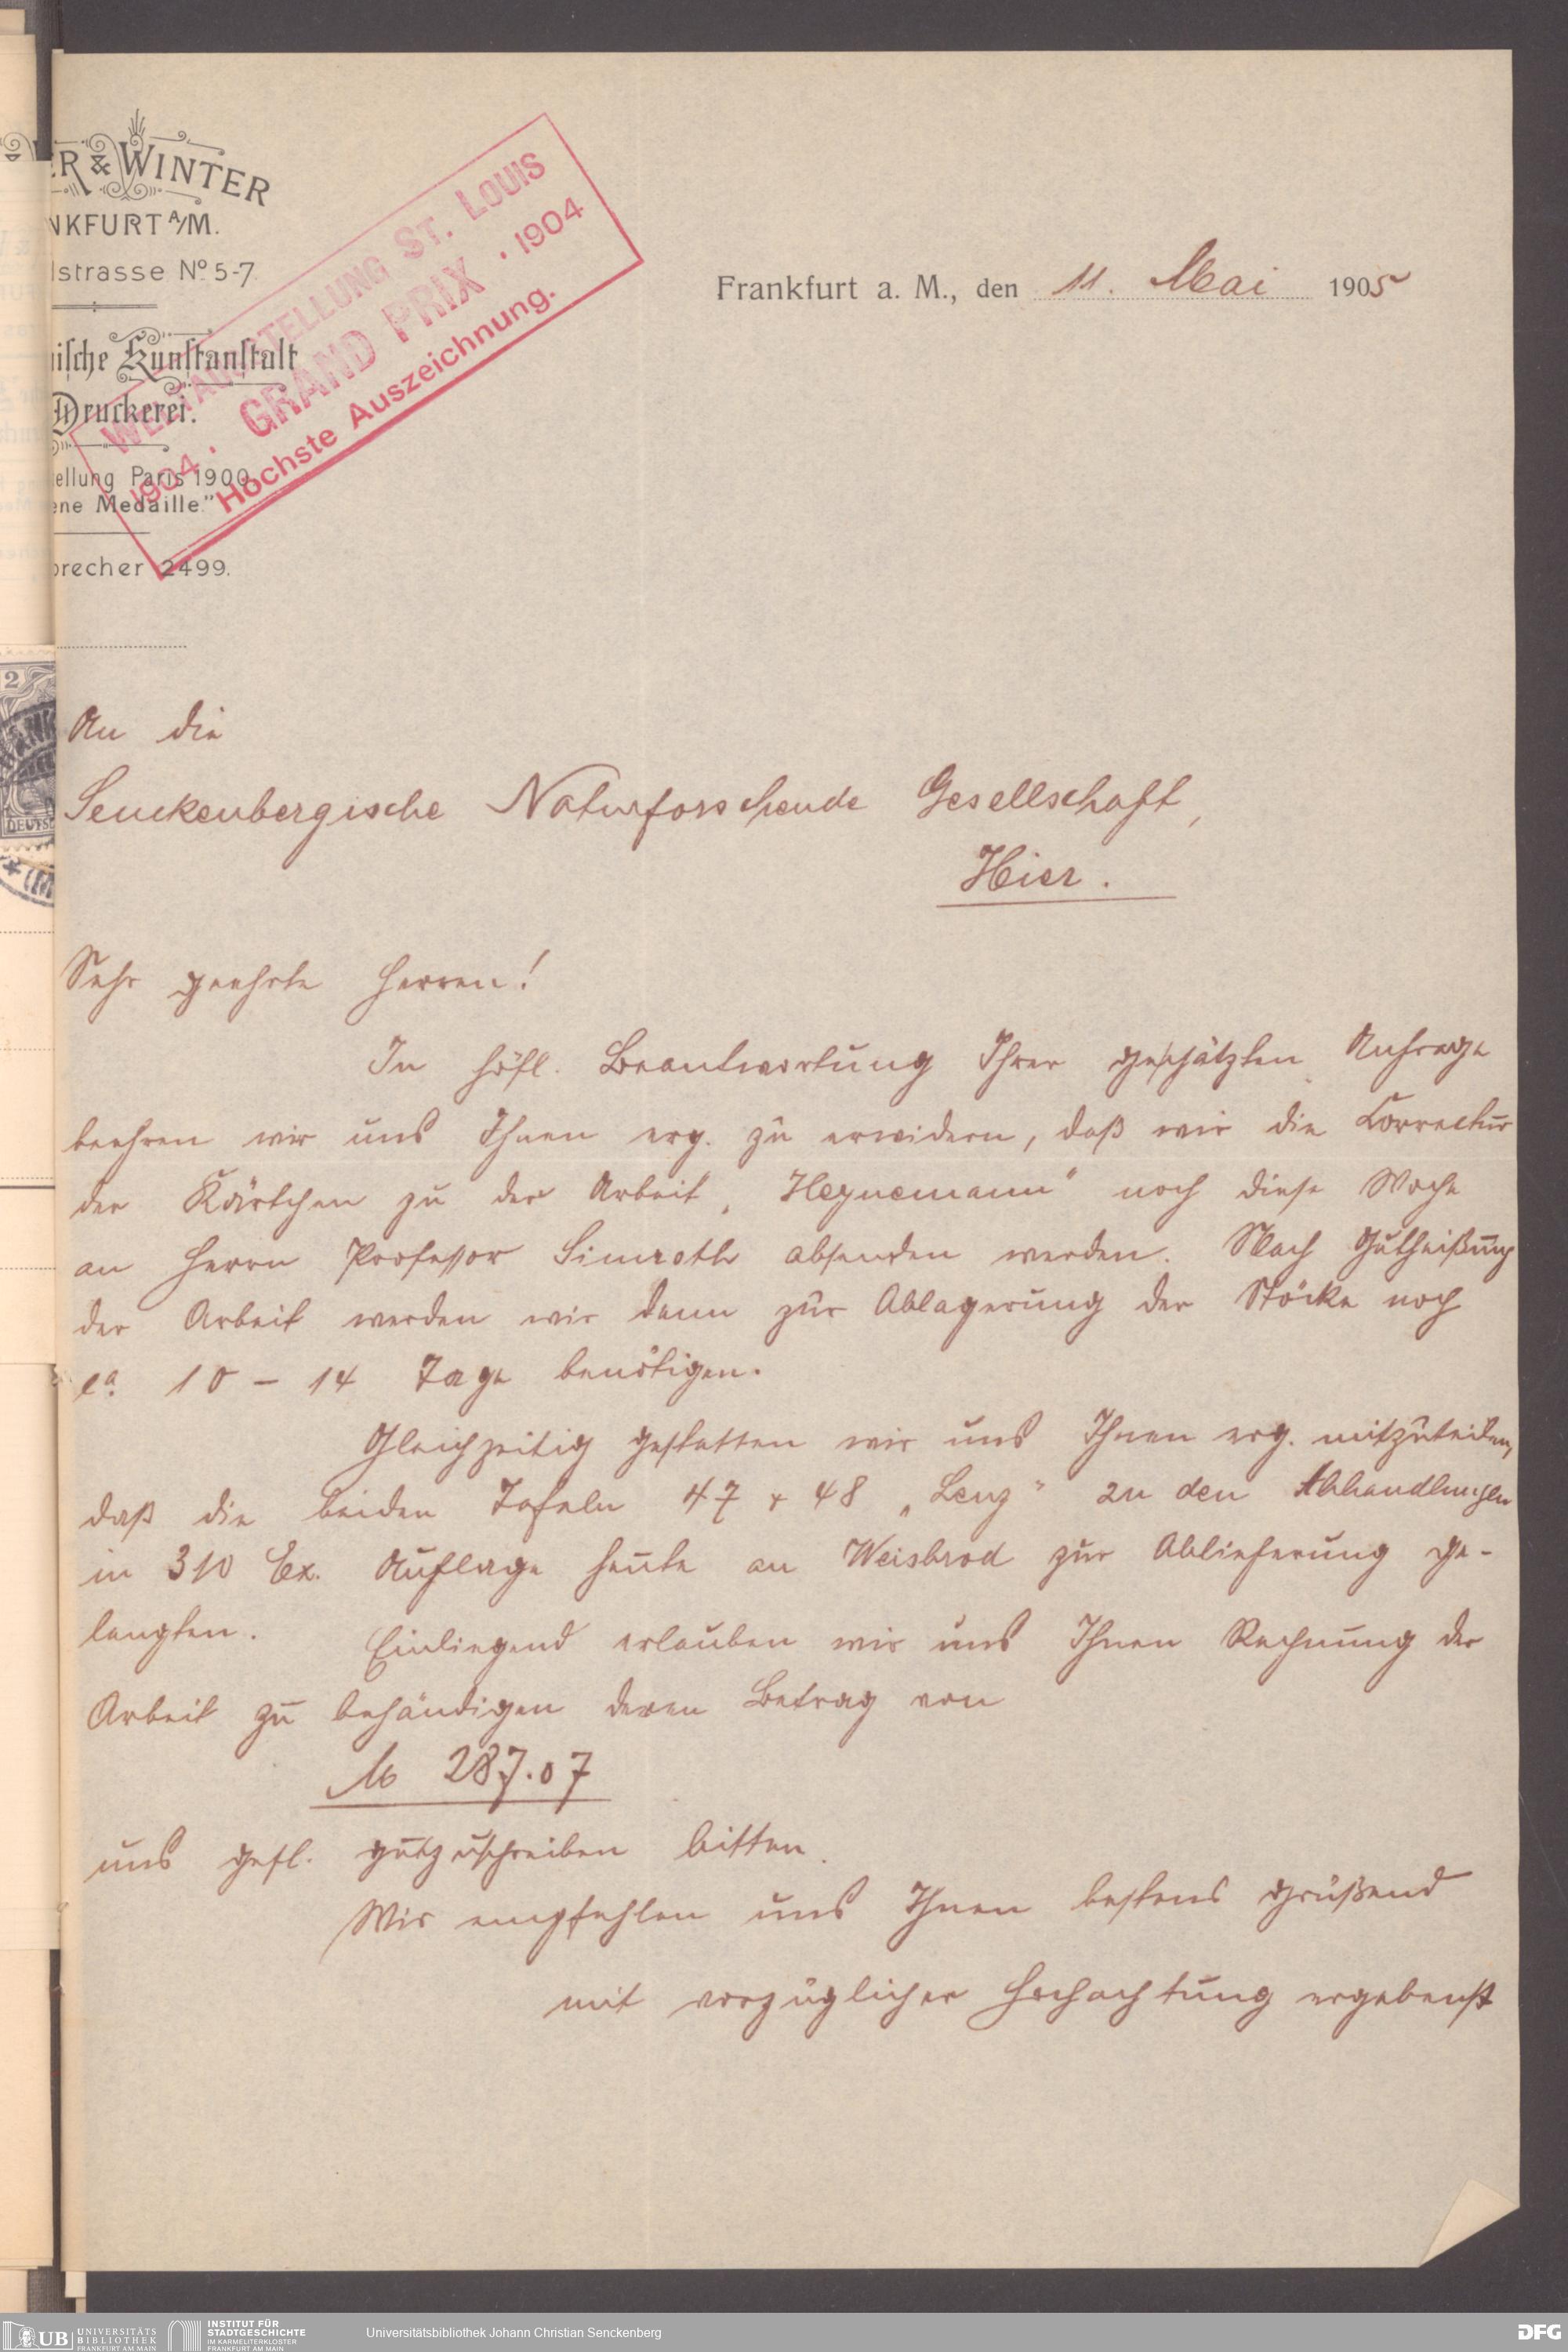 ER & WINTER
NKFURT A/M.
lstrasse No. 5-7.
WELTAUSSTELLUNG ST. LOUIS
1904 · GRAND PRIX · 1904
"Höchste Auszeichnung.
ische Kunstanstalt
Druckerei.
ellung Paris 1900
ene Medaille."
precher 2499.
Frankfurt a. M., den 11. Mai 1905
An die
Senckenbergische Naturforschende Gesellschaft,
Hier.
Sehr geehrte Herren!
In höfl. Beantwortung Ihrer geschätzten Anfrage
beehren wir uns Ihnen erg. zu erwidern, daß wir die Correctur
der Kärtchen zu der Arbeit „Heynemann“ noch diese Woche
an Herrn Professor Simroth absenden werden. Nach Gutheißung
der Arbeit werden wir dann zur Ablagerung der Stöcke noch
ca. 10 – 14 Tage benötigen.
Gleichzeitig gestatten wir uns Ihnen erg. mitzuteilen,
daß die beiden Tafeln 47 + 48 „Lenz“ zu den Abhandlungen
in 310 Ex. Auflage heute an Weisbrod zur Ablieferung ge-
langten. Einliegend erlauben wir uns Ihnen Rechnung der
Arbeit zu behändigen deren Betrag von
M 287.07
uns gefl. gutzuschreiben bitten.
Wir empfehlen uns Ihnen bestens grüßend
mit vorzüglicher Hochachtung ergebenst
UB UNIVERSITÄTS
BIBLIOTHEK
FRANKFURT AM MAIN
INSTITUT FÜR
STADTGESCHICHTE
IM KARMELITERKLOSTER
FRANKFURT AM MAIN
Universitätsbibliothek Johann Christian Senckenberg
DFG